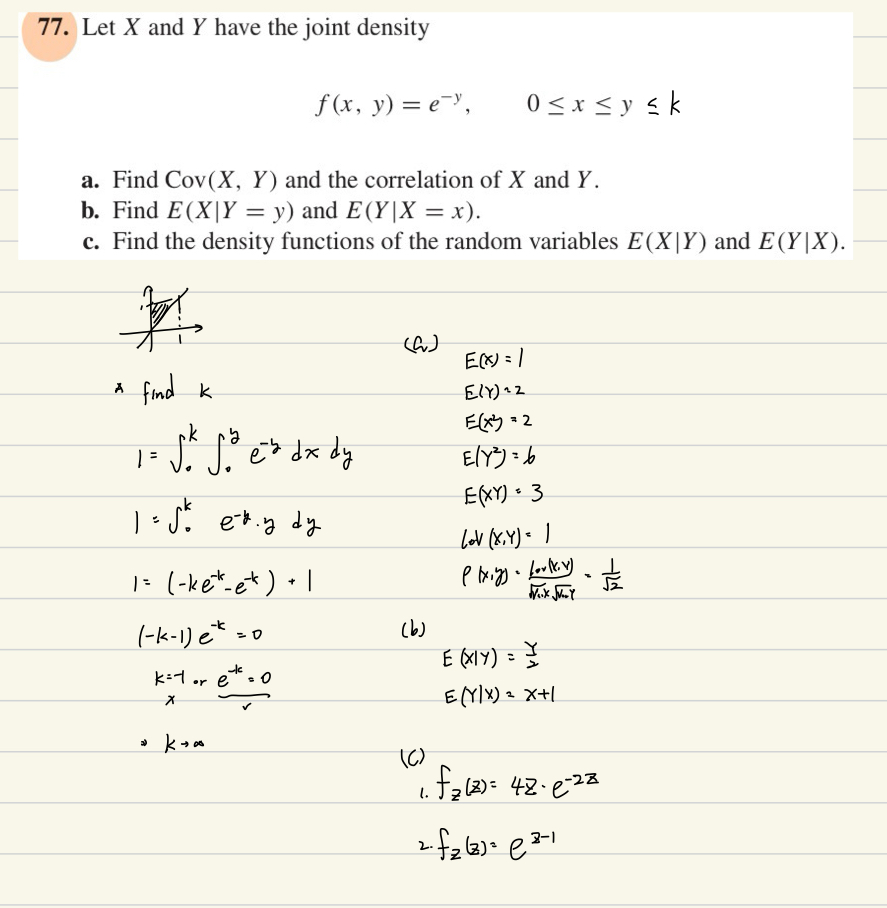 77. Let X and Y have the joint density
f(x, y) = e^{-y}, 0 ≤ x ≤ y ≤ k
a. Find Cov(X, Y) and the correlation of X and Y.
b. Find E(X|Y = y) and E(Y|X = x).
c. Find the density functions of the random variables E(X|Y) and E(Y|X).
* find k
1 = ∫₀^k ∫₀^y e^{-y} dx dy
1 = ∫₀^k e^{-y}·y dy
1 = (-ke^{-k}-e^{-k}) + 1
(-k-1) e^{-k} = 0
k=-1 or e^{-k} = 0
x ✓
⇒ k→∞
(a)
E(X) = 1
E(Y) = 2
E(X²) = 2
E(Y²) = 6
E(XY) = 3
Cov (X,Y) = 1
ρ(x,y) = Cov(X,Y) / √Var X √Var Y = 1/√2
(b)
E(X|Y) = Y/2
E(Y|X) = X+1
(c)
1. f_Z(z) = 4z·e^{-2z}
2. f_Z(z) = e^{z-1}